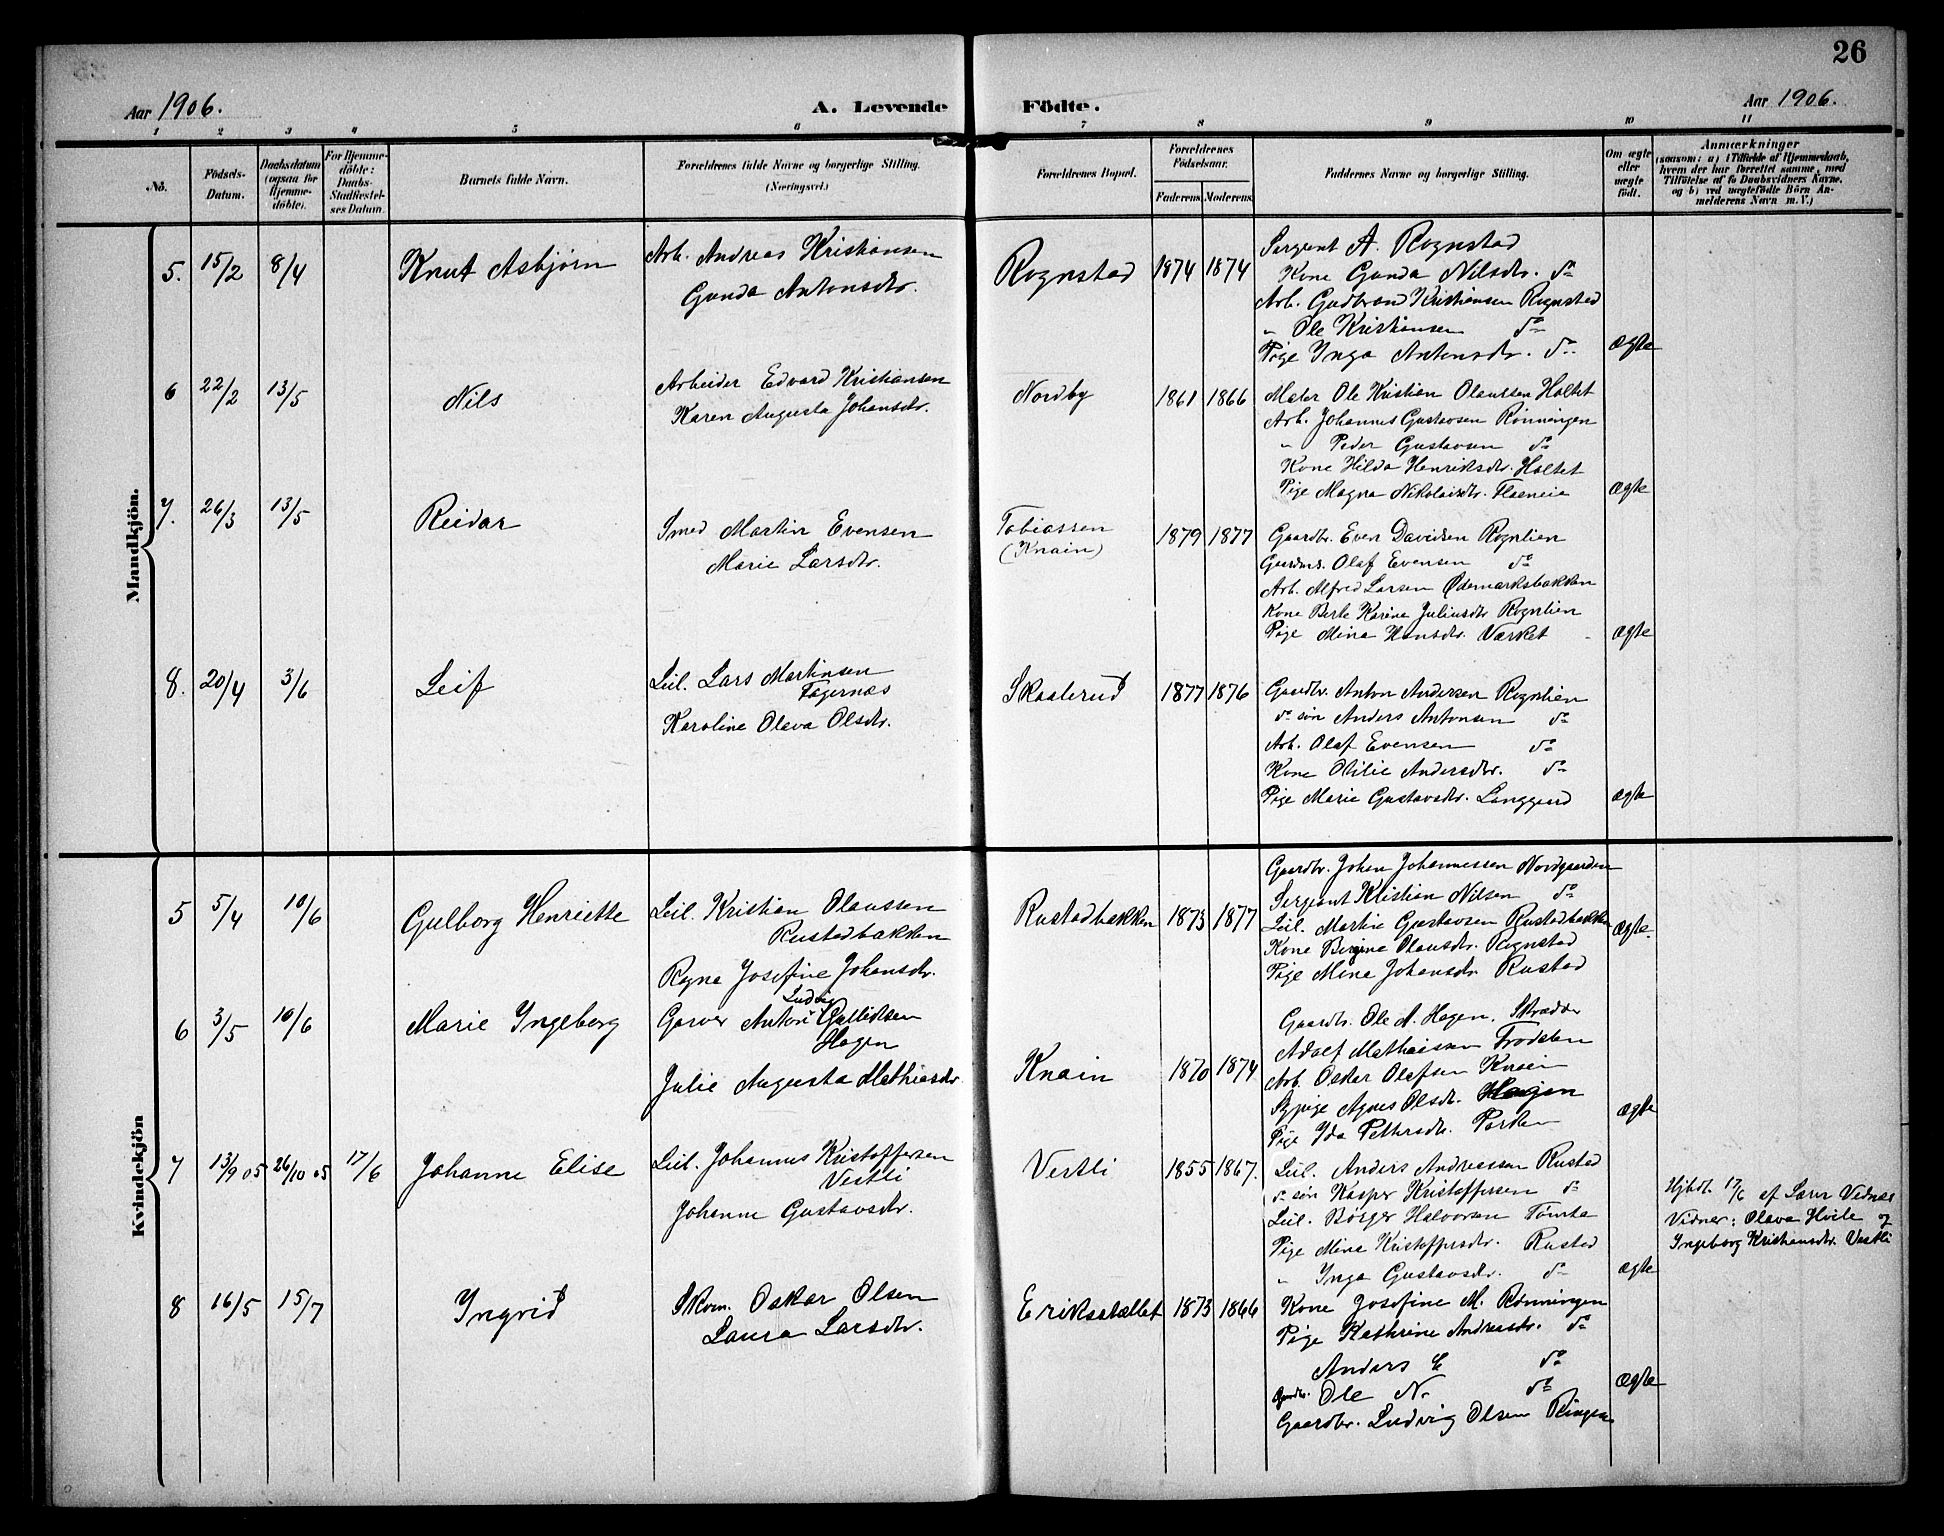 26
Aar 1906. A. Levende Födte. Aar 1906.
1 2 3 4 5 6 7 8 9 10 11
No.
Födsels-
Datum.
Daabsdatum
(ogsaa for
Hjemme-
döbte).
For Hjemme-
döbte:
Daabs-
Stadfæstel-
ses Datum.
Barnets fulde Navn.
Forældrenes fulde Navne og borgerlige Stilling.
(Næringsvei.)
Forældrenes Bopæl.
Forældrenes
Födselsaar.
Faderens Moderens
Faddernes Navne og borgerlige Stilling.
Om ægte
eller
uægte
födt.
Anmærkninger
(saasom: a) i Tilfælde af Hjemmedaab,
hvem der har forrettet samme, med
Tilföielse af to Daabsvidners Navne,
og b) ved uægtefödte Börn An-
melderens Navn m.V.)
Mandkjön.
5. 15/2 8/4 Knut Asbjørn
Arb. Andreas Kristiansen
Gunda Antonsdtr.
Rognstad 1874 1874
Sergent A. Rognstad
Kone Gunda Nilsdtr. do
Arb. Gudbrand Kristiansen Rognstad
" Ole Kristiansen do
Pige Inga Antonsdtr. do
ægte
6 22/2 13/5 Nils
Arbeider Edvard Kristiansen
Karen Augusta Johansdtr.
Nordby 1861 1866
Maler Ole Kristian Olaussen Holtet
Arb. Johannes Gustavsen Rønningen
" Peder Gustavsen do
Kone Hilda Henriksdtr. Holtet
Pige Magna Nikolaisdtr. Flæneia
ægte
7. 26/3 13/5 Reidar
Smed Martin Evensen
Marie Larsdtr.
Tobiassen
(Knain)
1879 1877
Gaardbr. Even Davidsen Rognlien
Gaardm. Olaf Evensen do
Arb. Alfred Larsen Ødemarksbakken
Kone Berte Karine Juliusdtr Rognlien
Pige Mina Hansdtr. Værket
ægte
8. 20/4 3/6 Leif
Leil. Lars Martinsen
Fagernæs
Karoline Oleva Olsdtr.
Skaalerud 1877 1876
Gaardbr. Anton Andersen Rognlien
do søn Anders Antonsen do
Arb. Olaf Evensen do
Kone Otilie Andersdtr. do
Pige Marie Gustavsdtr. Langgaard
ægte
Kvindekjön
5 5/4 10/6 Gulborg Henriette
Leil. Kristian Olaussen
Rustadbakken
Ragna Josefine Johansdtr.
Rustadbakken 1873 1877
Gaardbr. Johan Johannessen Nordgaarden
Sergeant Kristian Nilsen do
Leil. Martin Gustavsen Rustadbakken
Kone Bergine Olausdtr. Rognstad
Pige Mina Johansdtr Rustad
ægte.
6 3/5 10/6 Marie Ingeborg
Ludvig
Garver Anton Gulliksen
Hagen
Julie Augusta Mathiasdtr.
Knain 1870 1874
Gaardbr. Ole A. Hagen, Skræder
Adolf Mathiassen Frodalen
Arb. Oskar Olafsen Knain
Sypige Agnes Olsdtr. Hagen
Pige Ida Pettersdtr. Parken
ægte
7 13/9 05 26/10 05 17/6 Johanne Elise
Leil. Johannes Kristoffersen
Vestli
Johanne Gustavsdtr.
Vestli 1855 1867.
Leil. Anders Andreassen Rustad
do søn Kasper Kristoffersen do
Leil. Børger Halvorsen Tømte
Pige Mina Kristoffersdtr. Rustad
" Inga Gustavsdtr. do
ægte
Hjbdt. 17/6 af Sara Vidnæs
Vidner: Olava Hvile og
Ingeborg Kristiansdtr. Vestli
8 16/5 15/7 Ingrid
Skom. Oskar Olsen
Laura Larsdtr.
Eriksstallet 1873 1866
Kone Josefine M. Rønningen
Pige Kathrine Andreasdtr. do
Anders E do
Gaardbr. Ole N. do
Gaardbr. Ludvig Olsen Ringen
ægte